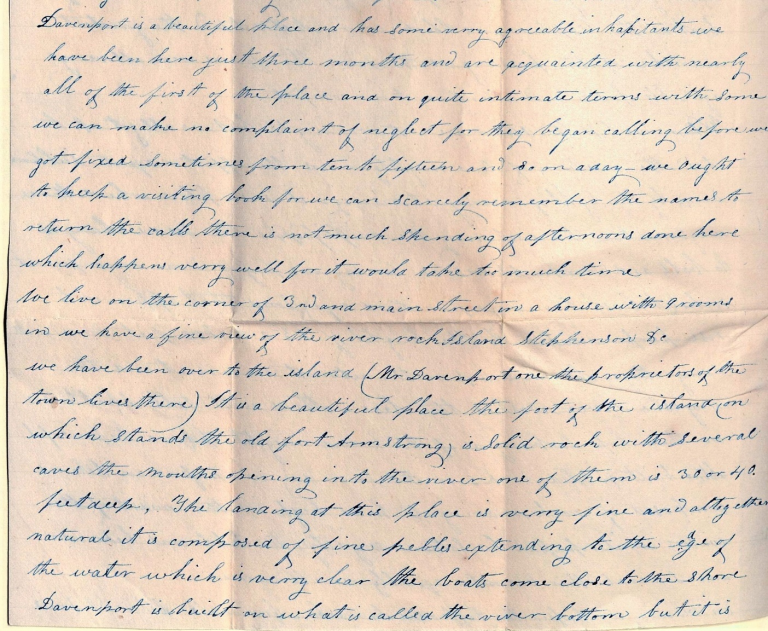 Davenport is a beautiful place and has some verry agreeable inhabitants we
have been here just three months and are acquainted with nearly
all of the first of the place and on quite intimate terms with some
we can make no complaint of neglect for they began calling before we
got fixed sometimes from ten to fifteen and so on a day - we ought
to keep a visiting book for we can scarcely remember the names to
return the calls there is not much spending of afternoons done here
which happens verry well for it would take too much time
We live on the corner of 3rd and main street in a house with 9 rooms
in we have a fine view of the river rock Island Stephenson &c
we have been over to the island (Mr Davenport one the proprietors of the
town lives there) It is a beautiful place the foot of the island (on
which stands the old fort Armstrong) is solid rock with several
caves the mouths opening into the river one of them is 30 or 40
feet deep, The landing at this place is verry fine and altogether
natural it is composed of fine pebles extending to the edge of
the water which is verry clear the boats come close to the shore
Davenport is built on what is called the river bottom but it is